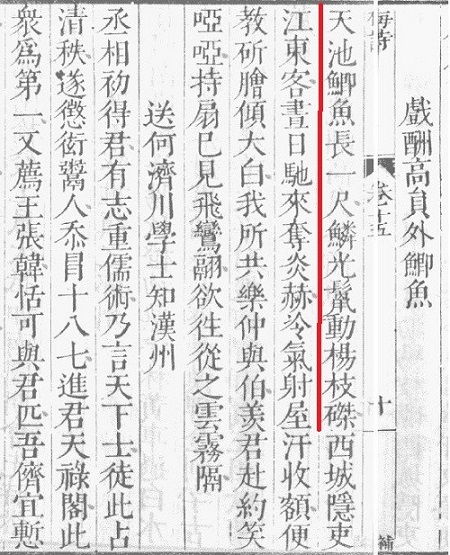 戲酬高員外鯽魚
梅詩
卷十五
十
補
天池鯽魚長一尺鱗光鬣動楊枝磔西城隱吏
江東客晝日馳來奪炎赫冷氣射屋汗收額便
教斫膾傾大白我所共樂仲與伯羨君赴約笑
啞啞持扇已見飛鸞翮欲往從之雲霧隔
送何濟川學士知漢州
丞相初得君有志重儒術乃言天下士徒此占
清秩遂懲衒鬻人忝冒十八七進君天祿閣此
衆爲第一又薦王張韓恬可與君匹吾儕宜慙